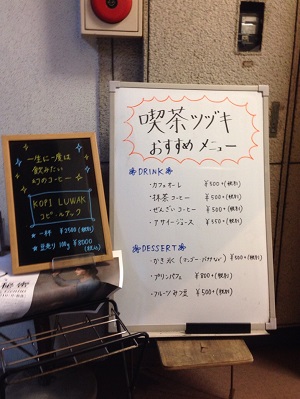 一生に一度は
飲みたい
幻のコーヒー
KOPI LUWAK
コピ・ルアック
一杯 ¥2500(税別)
豆売り 100g ¥8000
(税込)
喫茶ツヅキ
おすすめ メニュー
DRINK
・カフェオーレ ¥500+(税別)
・抹茶コーヒー ¥500+(税別)
・ぜんざいコーヒー ¥500+(税別)
・アサイージュース ¥350+(税別)
DESSERT
・かき氷 (マンゴー・バナナなど) ¥500+(税別)
・プリンパフェ ¥800+(税別)
・フルーツみつ豆 ¥500+(税別)